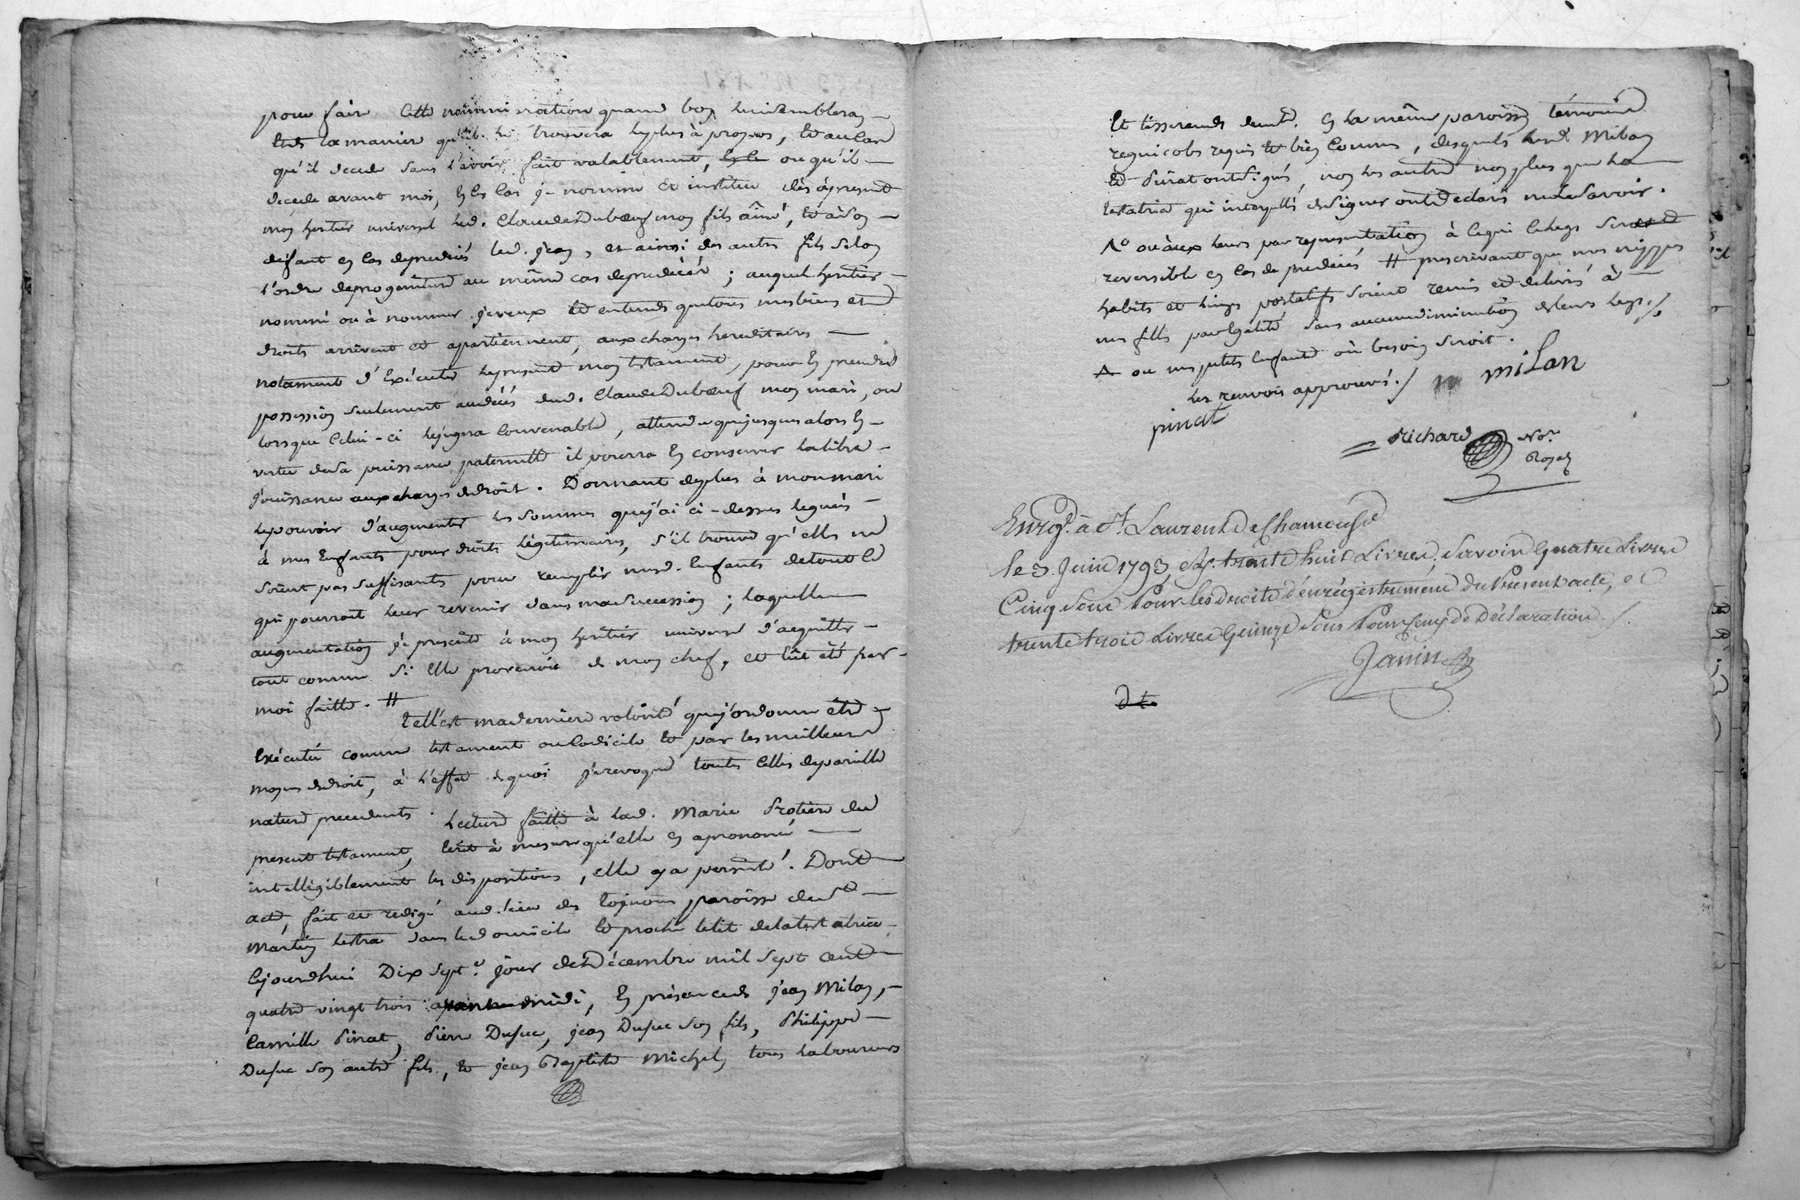 pour fair cette nomination quand bon lui semblera,
et de la maniere qu'il le trouvera le plus à propos, et au cas
qu'il decede sans l'avoir fait valablement, ou qu'il
decede avant moi, en ce cas je nomme et institue dès àpresent
mon heritier universel led. Claude Dubœuf mon fils ainé, et à son
defaut en cas de predecès led. jean, et ainsi des autres fils selon
l'ordre de progeniture au même cas de predecès ; auquel heritier
nommé ou à nommer je veux et entends que tous mes biens et
droits arrivent et apartiennent, aux charges hereditaires
notament d'Exécuter le present mon testament, pour en prendre
possession seulement au decès dud. Claude Dubœuf mon mari, ou
lorsque celui-ci le jugera convenable, attendu que jusques alors en
vertu de sa puissance paternelle il pourra en conserver la libre
jouissance aux charges de droit. Donnant de plus à mon mari
le pouvoir d'augmenter les sommes que j'ai ci-dessus leguées
à mes Enfants pour droits légitimaires, s'il trouve qu'elles ne
soient pas suffisants pour remplir mesd. Enfants de tout ce
qui pourroit leur revenir dans ma succession ; laquelle
augmentation je prescrits à mon heritier universel d'acquitter
tout comme si elle provenoit de mon chef, et eût été par
moi faitte. #
telle est ma derniere volonté que j'ordonne être
Exécutée comme testament ou Codicile et par les meilleurs
moyens de droit, à l'effet de quoi je revoque toutes celles de pareille
nature precedents. Lecture faitte à lad. Marie Protiere du
present testament, Ecrit à mesure qu'elle en a prononcé
intelligiblement les dispositions, elle y a persisté. Dont
acte, fait et redigé aud. lieu des Lojnons, paroisse dud. St
Martin Lestra dans le domicile et proche le lit de la testatrice,
Cejourdhui Dix sept.e jour de Décembre mil sept cent
quatre vingt trois après midi, En présence de jean Milan,
Camille Pinat, Pierre Dusuc, jean Dusuc son fils, Philippe
Dusuc son autre fils, et jean Baptiste Michel, tous laboureurs
Et tisserands demt. En la même paroisse témoins
requis et bien connus, desquels led. Milan
et Pinat ont signés, non les autres non plus que la
testatrice qui interpellés de signer ont declaré ne le savoir.
ou à eux leurs par representation à ce qui le legs sera
reversible en cas de predecès # prescrivant que mes nippes
habits et linges portatifs soient remis et delivrés à
mes filles par égalité sans aucune diminution de leurs legs./.
ou mes petits Enfants où besoin seroit.
les renvois approuvés./ milan
pinat
Richard No.re
Royal
Enrg.é à St. Laurent De Chamousset
le 3. Juin 1793 et reçu trente huit Livres, savoir Quatre Livres
Cinq sous Pour les droits d'énrégistrement du Present acte, et
trente trois Livres Quinze sous Pour ceux De Déclaration./.
Janin